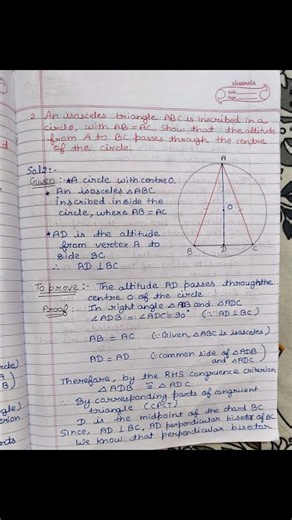 classmate
Date
Page
2. An isosceles triangle ABC is inscribed in a
circle, with AB = AC. Show that the altitude
from A to BC passes through the centre
of the circle.
Sol2:-
Given :- * A circle with centre O.
* An isosceles △ABC
inscribed inside the
circle, where AB = AC
* AD is the altitude
from vertex A to
side BC
∴ AD ⊥ BC
A
O
B D C
To prove :- The altitude AD passes through the
centre O of the circle
Proof :- In right angle △ADB and △ADC
∠ADB = ∠ADC = 90° (∵ AD ⊥ BC)
AB = AC (∵ Given, △ABC is isosceles)
AD = AD (∵ common side of △ADB
and △ADC)
Therefore, by the RHS congruence criterion
△ADB ≅ △ADC
∴ By corresponding parts of congruent
triangle (CPCT)
D is the midpoint of the chord BC
Since, AD ⊥ BC, AD perpendicular bisector of BC
We know that perpendicular bisector